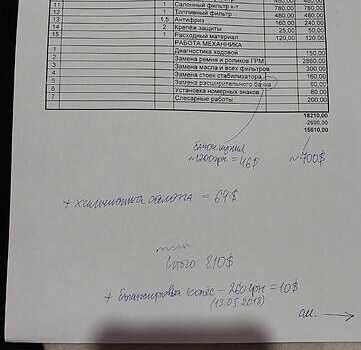 11 1 Салонный фильтр к-т 480,00 480,00
12 1 Топливный фильтр 780,00 780,00
13 1,5 Антифриз 480,00 480,00
14 2 Крепёж защиты 160,00 240,00
15 1 Расходный материал 25,00 50,00
120,00 120,00
РАБОТА МЕХАНИКА
1 Диагностика ходовой 150,00
2 Замена ремня и роликов ГРМ 2860,00
3 Замена масла и всех фильтров 300,00
4 Замена стоек стабилизатора 160,00
5 Замена расширительного бачка 80,00
6 Установка номерных знаков 80,00
7 Слесарные работы 200,00
18210,00
-2600,00
15610,00
~1200грн = 46$ ~700$
+ химчистка салона = 64$
Итого: 810$
+ балансировка колёс - 260грн = 10$
(13.05.2018)